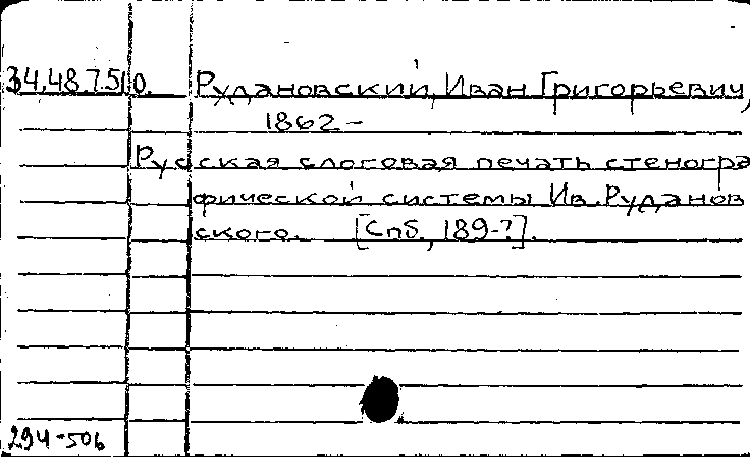 34.48.7.510. Рудановский, Иван Григорьевич,
1862-
Русская слоговая печать стеногра
фической системы Ив. Руданов
ского. [Спб., 189-?].
294-506